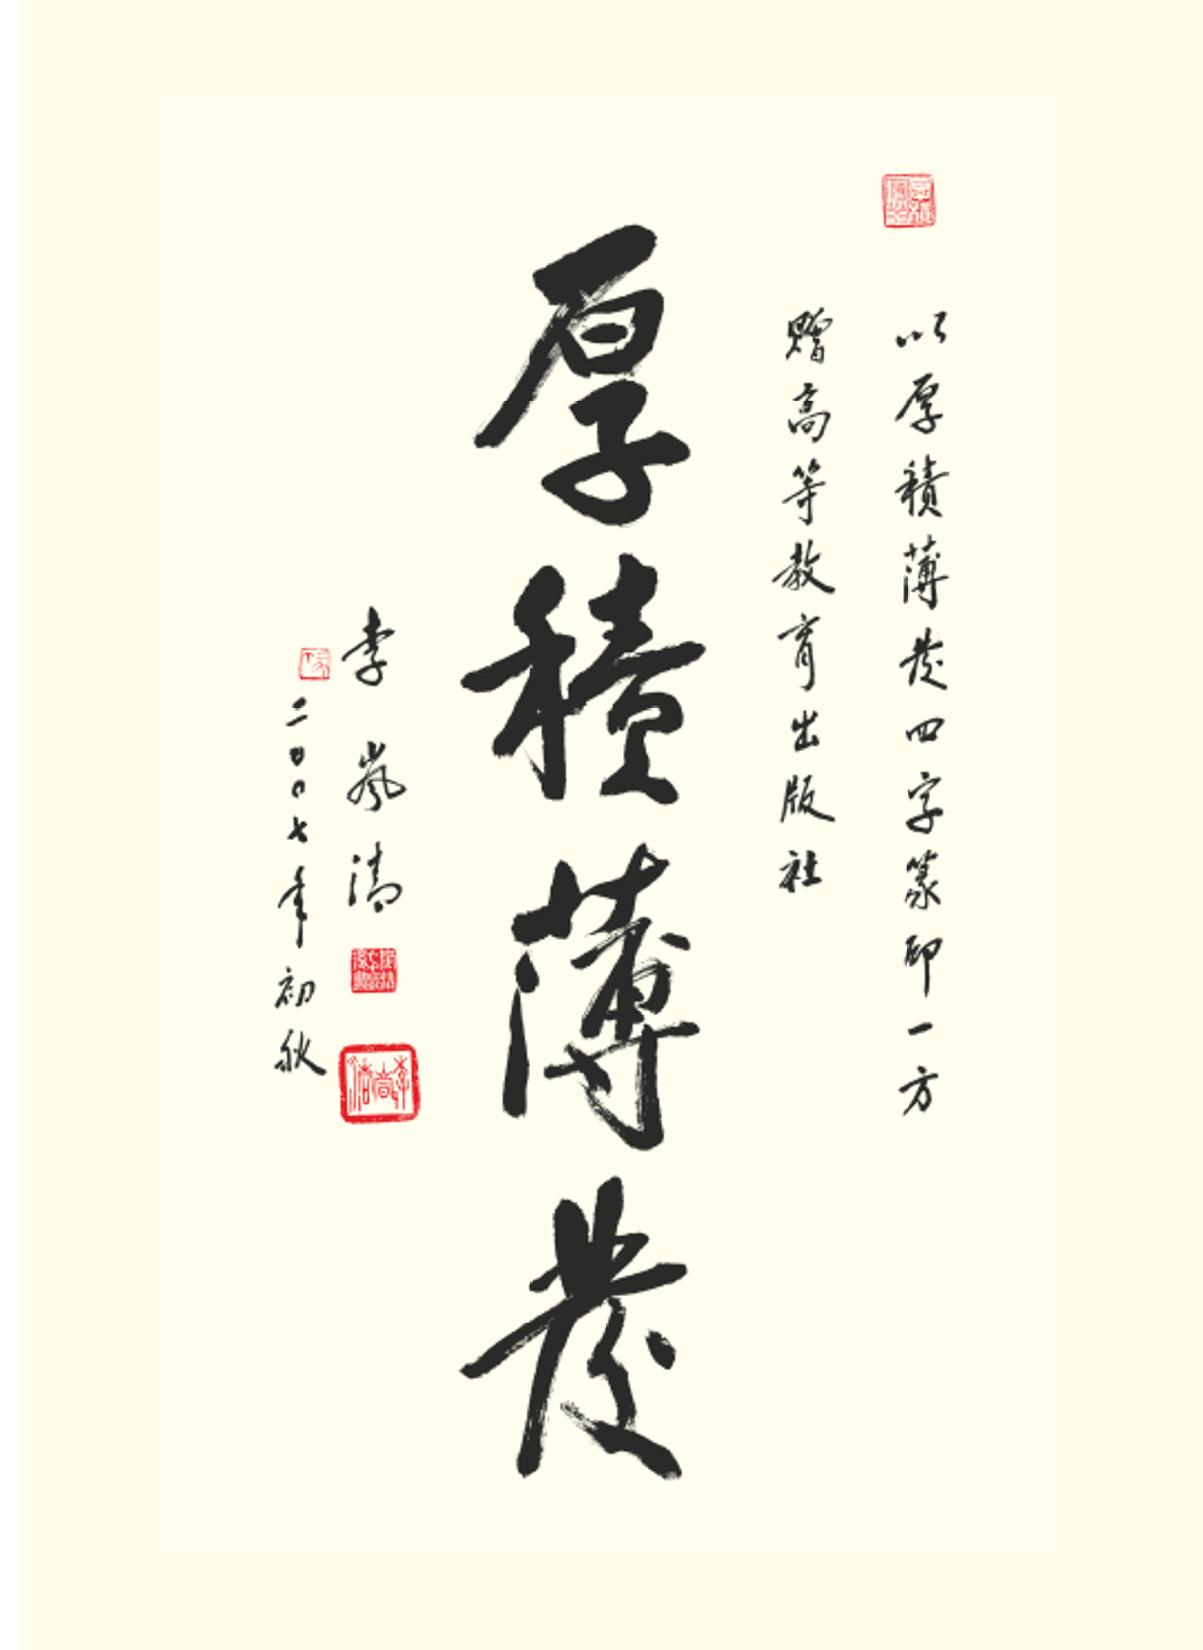 以厚積薄发四字篆印一方
赠高等教育出版社
厚積薄发
李岚清
二〇〇七年初秋